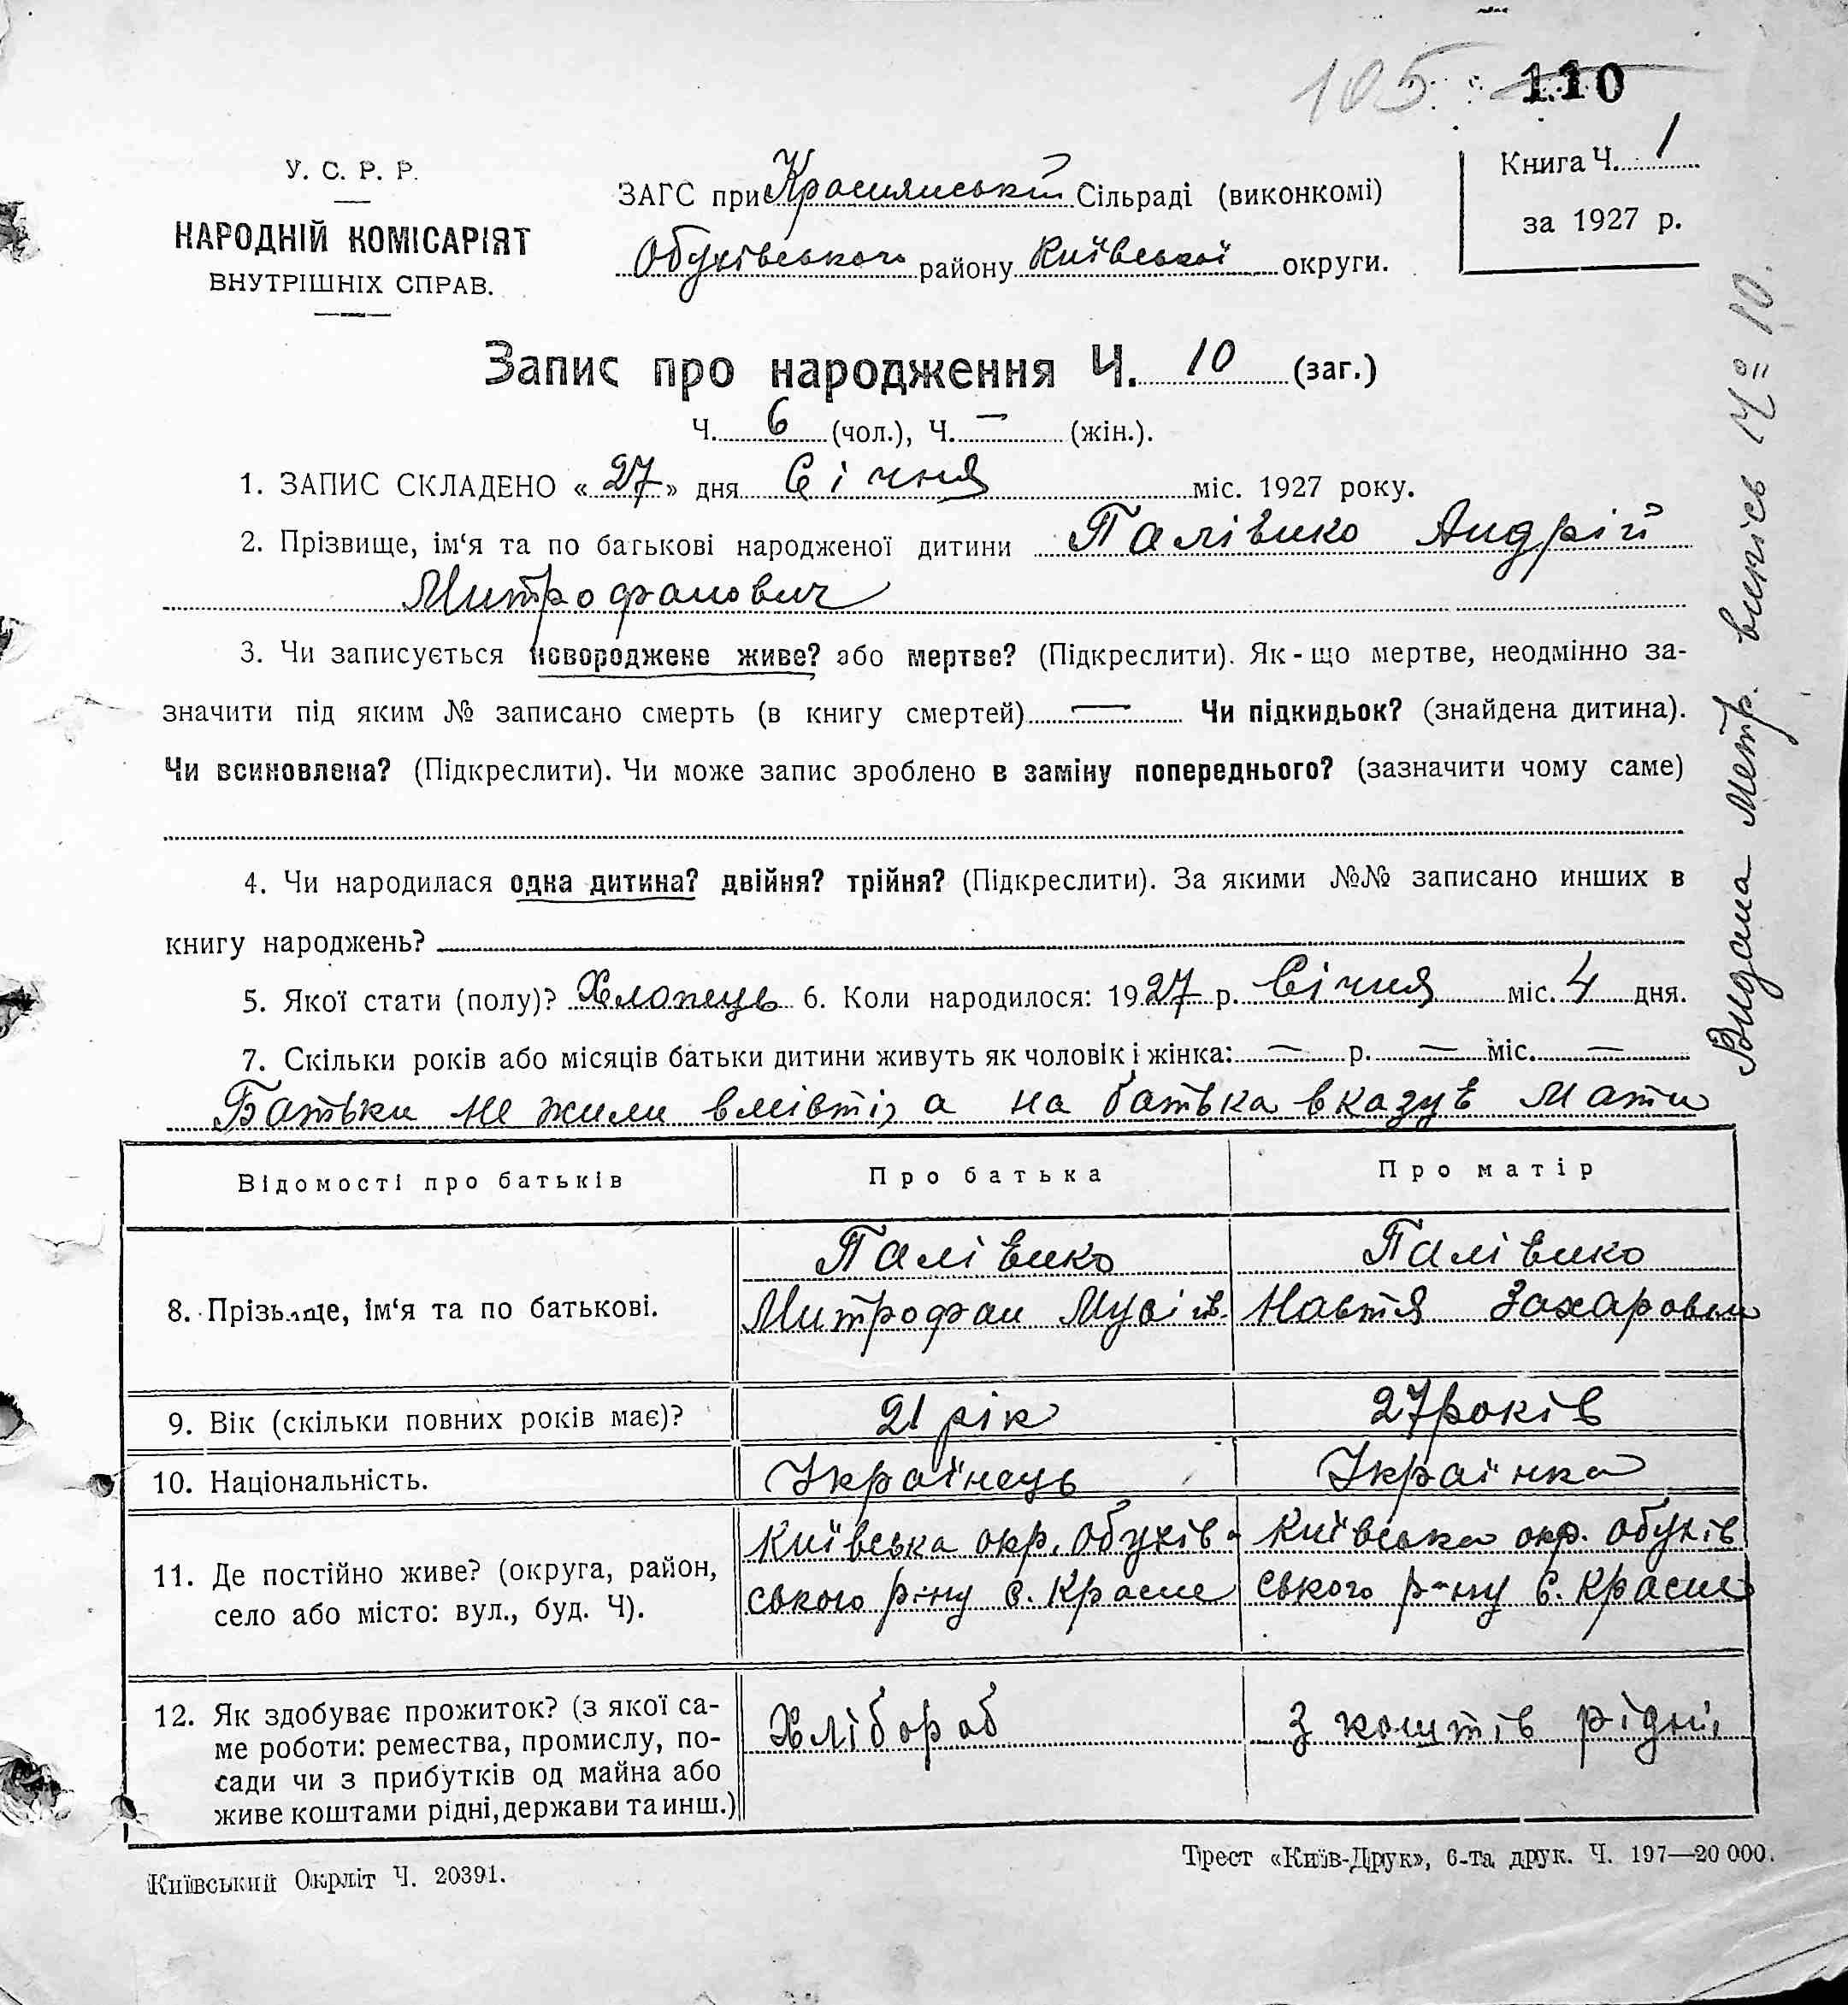 105 110
У. С. Р. Р.
НАРОДНІЙ КОМІСАРІЯТ
ВНУТРІШНІХ СПРАВ.
ЗАГС при Краснянській Сільраді (виконкомі)
Обухівського району Київської округи.
Книга Ч. 1
за 1927 р.
Запис про народження Ч. 10 (заг.)
Ч. 6 (чол.), Ч. — (жін.).
1. ЗАПИС СКЛАДЕНО «27» дня Січня міс. 1927 року.
2. Прізвище, ім'я та по батькові народженої дитини Палівико Андрій
Митрофанович
3. Чи записується новороджене живе? або мертве? (Підкреслити). Як-що мертве, неодмінно за-
значити під яким № записано смерть (в книгу смертей) — Чи підкидьок? (знайдена дитина).
Чи всиновлена? (Підкреслити). Чи може запис зроблено в заміну попереднього? (зазначити чому саме)
4. Чи народилася одна дитина? двійня? трійня? (Підкреслити). За якими №№ записано инших в
книгу народжень?
5. Якої стати (полу)? Хлопець 6. Коли народилося: 1927 р. Січня міс. 4 дня.
7. Скільки років або місяців батьки дитини живуть як чоловік і жінка: — р. — міс. —
Батьки не жили вмісті, а на батька вказує мати
Відомості про батьків Про батька Про матір
8. Прізвище, ім'я та по батькові.
Палівико
Митрофан Мусіїв.
Палівико
Настя Захаровна
9. Вік (скільки повних років має)? 21 рік 27 років
10. Національність. Українець Українка
11. Де постійно живе? (округа, район,
село або місто: вул., буд. Ч).
Київська окр. Обухів-
ського р-ну с. Красне
Київська окр. Обухів
ського р-ну с. Красне
12. Як здобуває прожиток? (з якої са-
ме роботи: ремества, промислу, по-
сади чи з прибутків од майна або
живе коштами рідні, держави та инш.)
Хлібороб
З коштів рідні
Київський Окрліт Ч. 20391.
Трест «Київ-Друк», 6-та друк. Ч. 197—20 000.
Видана метр. випісь № 10.